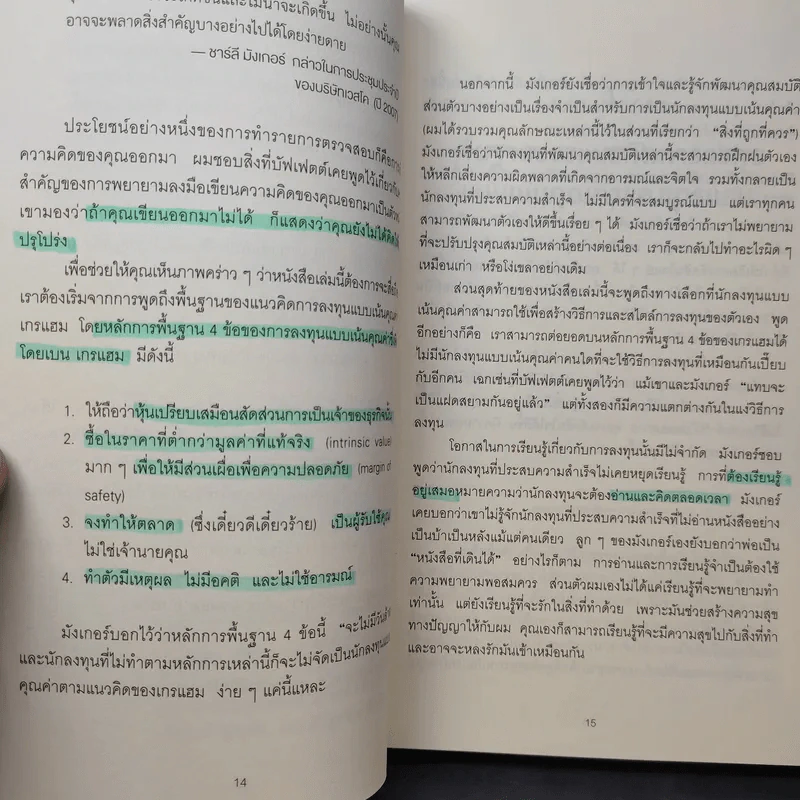 อาจจะพลาดสิ่งสำคัญบางอย่างไปได้โดยง่ายดาย
— ชาร์ลี มังเกอร์ กล่าวในการประชุมประจำปี
ของบริษัทเวสโค (ปี 2007)
ประโยชน์อย่างหนึ่งของการทำรายการตรวจสอบก็คือการ
ความคิดของคุณออกมา ผมชอบสิ่งที่บัฟเฟตต์เคยพูดไว้เกี่ยวกับ
สำคัญของการพยายามลงมือเขียนความคิดของคุณออกมาเป็นตัว
เขามองว่าถ้าคุณเขียนออกมาไม่ได้ ก็แสดงว่าคุณยังไม่ได้คิด
ปรุโปร่ง
เพื่อช่วยให้คุณเห็นภาพคร่าว ๆ ว่าหนังสือเล่มนี้ต้องการจะสื่อ
เราต้องเริ่มจากการพูดถึงพื้นฐานของแนวคิดการลงทุนแบบเน้นคุณค่า
เกรแฮม โดยหลักการพื้นฐาน 4 ข้อของการลงทุนแบบเน้นคุณค่า
โดยเบน เกรแฮม มีดังนี้
1. ให้ถือว่าหุ้นเปรียบเสมือนสัดส่วนการเป็นเจ้าของธุรกิจนั้น
2. ซื้อในราคาที่ต่ำกว่ามูลค่าที่แท้จริง (intrinsic value)
มาก ๆ เพื่อให้มีส่วนเผื่อเพื่อความปลอดภัย (margin of
safety)
3. จงทำให้ตลาด (ซึ่งเดี๋ยวดีเดี๋ยวร้าย) เป็นผู้รับใช้คุณ
ไม่ใช่เจ้านายคุณ
4. ทำตัวมีเหตุผล ไม่มีอคติ และไม่ใช้อารมณ์
มังเกอร์บอกไว้ว่าหลักการพื้นฐาน 4 ข้อนี้ “จะไม่มีวันล้า
และนักลงทุนที่ไม่ทำตามหลักการเหล่านี้ก็จะไม่จัดเป็นนักลงทุน
คุณค่าตามแนวคิดของเกรแฮม ง่าย ๆ แค่นี้แหละ
14
นอกจากนี้ มังเกอร์ยังเชื่อว่าการเข้าใจและรู้จักพัฒนาคุณสมบัติ
ส่วนตัวบางอย่างเป็นเรื่องจำเป็นสำหรับการเป็นนักลงทุนแบบเน้นคุณค่า
(ผมได้รวบรวมคุณลักษณะเหล่านี้ไว้ในส่วนที่เรียกว่า “สิ่งที่ถูกที่ควร”)
มังเกอร์เชื่อว่านักลงทุนที่พัฒนาคุณสมบัติเหล่านี้จะสามารถฝึกฝนตัวเอง
ให้หลีกเลี่ยงความผิดพลาดที่เกิดจากอารมณ์และจิตใจ รวมทั้งกลายเป็น
นักลงทุนที่ประสบความสำเร็จ ไม่มีใครที่จะสมบูรณ์แบบ แต่เราทุกคน
สามารถพัฒนาตัวเองให้ดีขึ้นเรื่อย ๆ ได้ มังเกอร์เชื่อว่าถ้าเราไม่พยายาม
ที่จะปรับปรุงคุณสมบัติเหล่านี้อย่างต่อเนื่อง เราก็จะกลับไปทำอะไรผิด ๆ
เหมือนเก่า หรือโง่เขลาอย่างเดิม
ส่วนสุดท้ายของหนังสือเล่มนี้จะพูดถึงทางเลือกที่นักลงทุนแบบ
เน้นคุณค่าสามารถใช้เพื่อสร้างวิธีการและสไตล์การลงทุนของตัวเอง พูด
อีกอย่างก็คือ เราสามารถต่อยอดบนหลักการพื้นฐาน 4 ข้อของเกรแฮมได้
ไม่มีนักลงทุนแบบเน้นคุณค่าคนใดที่จะใช้วิธีการลงทุนที่เหมือนกันเปี๊ยบ
กับอีกคน เฉกเช่นที่บัฟเฟตต์เคยพูดไว้ว่า แม้เขาและมังเกอร์ “แทบจะ
เป็นแฝดสยามกันอยู่แล้ว” แต่ทั้งสองก็มีความแตกต่างกันในแง่วิธีการ
ลงทุน
โอกาสในการเรียนรู้เกี่ยวกับการลงทุนนั้นมีไม่จำกัด มังเกอร์ชอบ
พูดว่านักลงทุนที่ประสบความสำเร็จไม่เคยหยุดเรียนรู้ การที่ต้องเรียนรู้
อยู่เสมอหมายความว่านักลงทุนจะต้องอ่านและคิดตลอดเวลา มังเกอร์
เคยบอกว่าเขาไม่รู้จักนักลงทุนที่ประสบความสำเร็จที่ไม่อ่านหนังสืออย่าง
เป็นบ้าเป็นหลังแม้แต่คนเดียว ลูก ๆ ของมังเกอร์เองยังบอกว่าพ่อเป็น
“หนังสือที่เดินได้” อย่างไรก็ตาม การอ่านและการเรียนรู้จำเป็นต้องใช้
ความพยายามพอสมควร ส่วนตัวผมเองไม่ได้แค่เรียนรู้ที่จะพยายามทำ
เท่านั้น แต่ยังเรียนรู้ที่จะรักในสิ่งที่ทำด้วย เพราะมันช่วยสร้างความสุข
ทางปัญญาให้กับผม คุณเองก็สามารถเรียนรู้ที่จะมีความสุขไปกับสิ่งที่ทำ
และอาจจะหลงรักมันเข้าเหมือนกัน
15